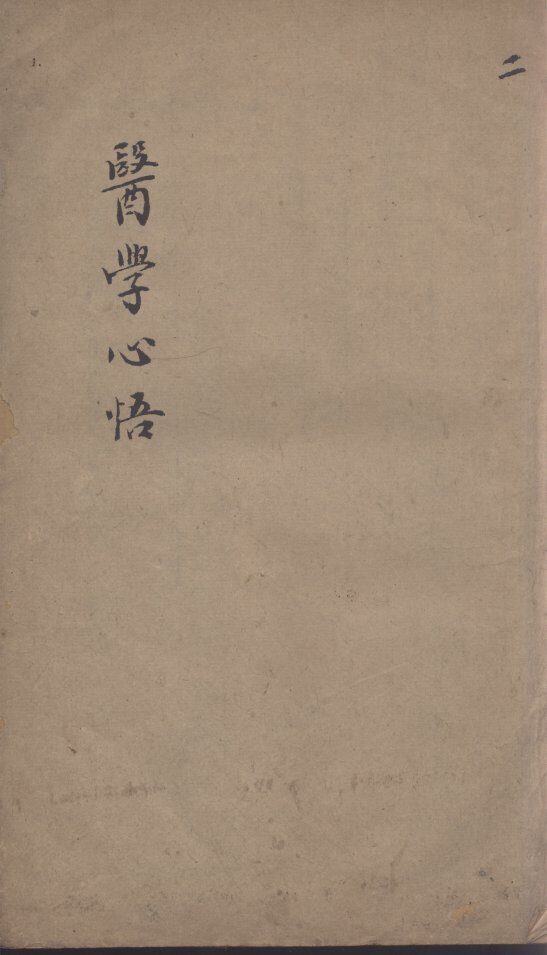 二
醫學心悟